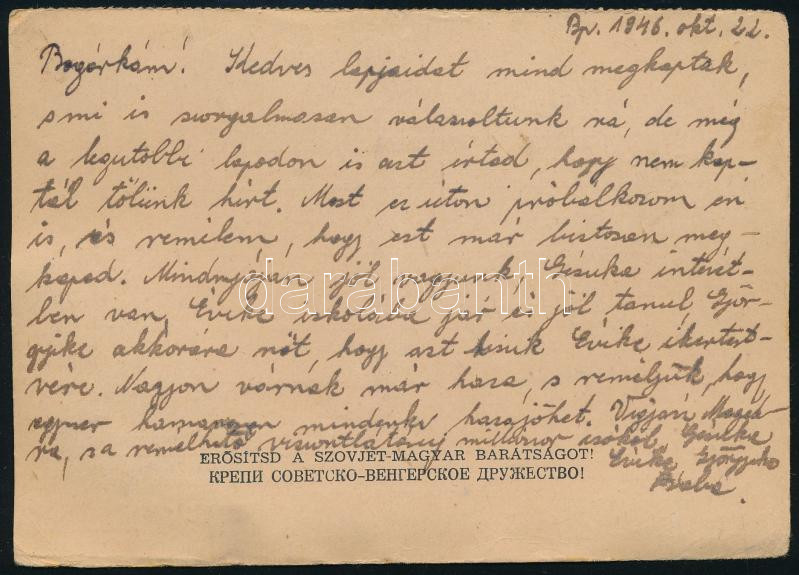 Bp. 1946. okt. 22.
Bogárkám! Kedves lapjaidat mind megkaptak,
s mi is szorgalmasan válaszoltunk rá, de még
a legutóbbi lapodon is azt írtad, hogy nem kap-
tál tőlünk hírt. Most ez úton próbálkozom én
is, és remélem, hogy ezt már biztosan meg-
kapod. Mindnyájan jól vagyunk, Gézuka intézet-
ben van, Évike iskolába jár és jól tanul, Gyur-
gyike akkorára nőt, hogy azt hiszik Évike ikertest-
vére. Nagyon várnak már haza, s reméljük, hogy
egyszer hamarosan mindenki hazajöhet. Vigyázz Magad-
ra, s a remélhető viszontlátásig milliószor csókol, Gézuka
Évike Györgyike
Baba.
darabanth
ERŐSITSD A SZOVJET-MAGYAR BARÁTSÁGOT!
КРЕПИ СОВЕТСКО-ВЕНГЕРСКОЕ ДРУЖЕСТВО!